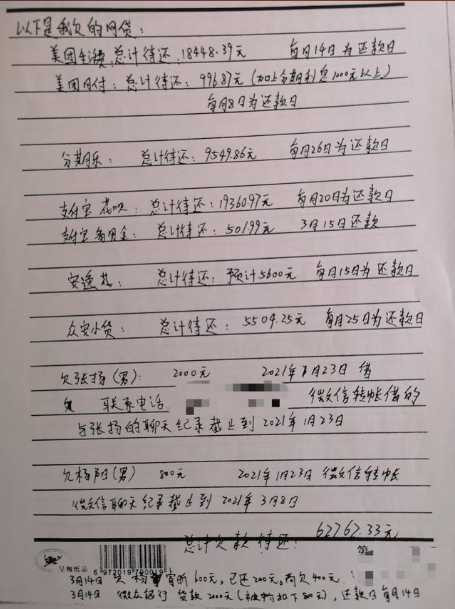 以下是我欠的网贷：
美团生活费，总计待还：18448.39元 每月14日为还款日
美团月付：总计待还：996.87元（加上分期利息1000元以上）
每月8日为还款日
分期乐：总计待还：9549.86元 每月26日为还款日
支付宝花呗：总计待还：19360.97元 每月20日为还款日
支付宝备用金：总计待还：501.99元 3月15日还款
安逸花：总计待还：预计5600元 每月15日为还款日
众安小贷：总计待还：5504.25元 每月25日为还款日
欠张扬（男）：2000元 2021年1月23日借
联系电话 微信转帐借的
与张扬的聊天纪录截止到2021年1月23日
欠杨阳（男）800元 2021年1月23日 微信转帐
微信聊天纪录截止到2021年3月8日
总计欠款待还：62762.33元
6 972019 790019
3月14日 欠杨 600元，已还200元，尚欠400元
3月14日 微众银行 贷款2000元 还款日每月14日